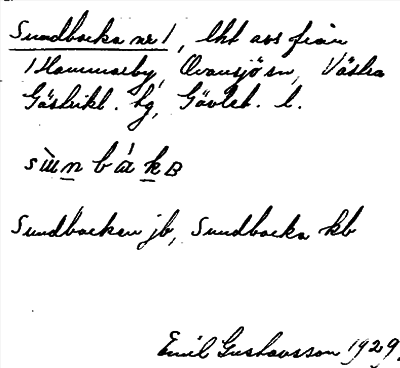 Sundbacka nr 1, lht avs från
1 Hammarby, Ovansjö sn, Västra
Gästrikl. hg, Gävleb. l.
sùn bák ʙ
Sundbacken jb, Sundbacka kb
Emil Gustavsson 1929.